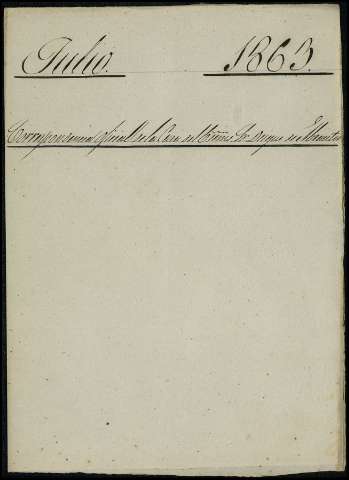 Julio. 1863.
Correspondencia oficial de la Casa del Excmo. Sr. Duque de